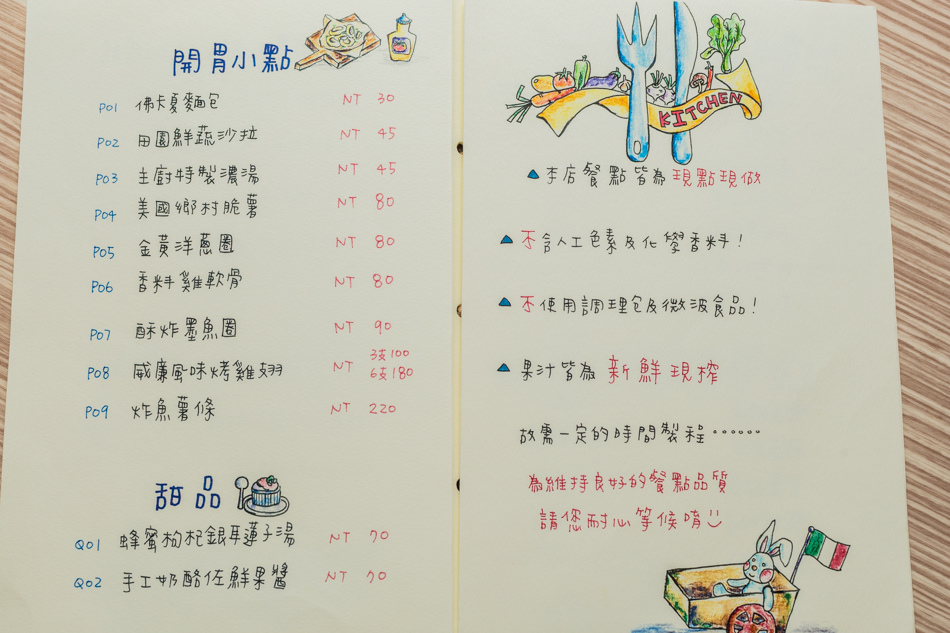 開胃小點
P01 佛卡夏麵包 NT 30
P02 田園鮮蔬沙拉 NT 45
P03 主廚特製濃湯 NT 45
P04 美國鄉村脆薯 NT 80
P05 金黃洋蔥圈 NT 80
P06 香料雞軟骨 NT 80
P07 酥炸墨魚圈 NT 90
P08 威廉風味烤雞翅 NT 3支100 6支180
P09 炸魚薯條 NT 220
甜品
Q01 蜂蜜枸杞銀耳蓮子湯 NT 70
Q02 手工奶酪佐鮮果醬 NT 70
KITCHEN
▲ 本店餐點皆為現點現做
▲ 不含人工色素及化學香料!
▲ 不使用調理包及微波食品!
▲ 果汁皆為 新鮮現榨
故需一定的時間製程……
為維持良好的餐點品質
請您耐心等候唷